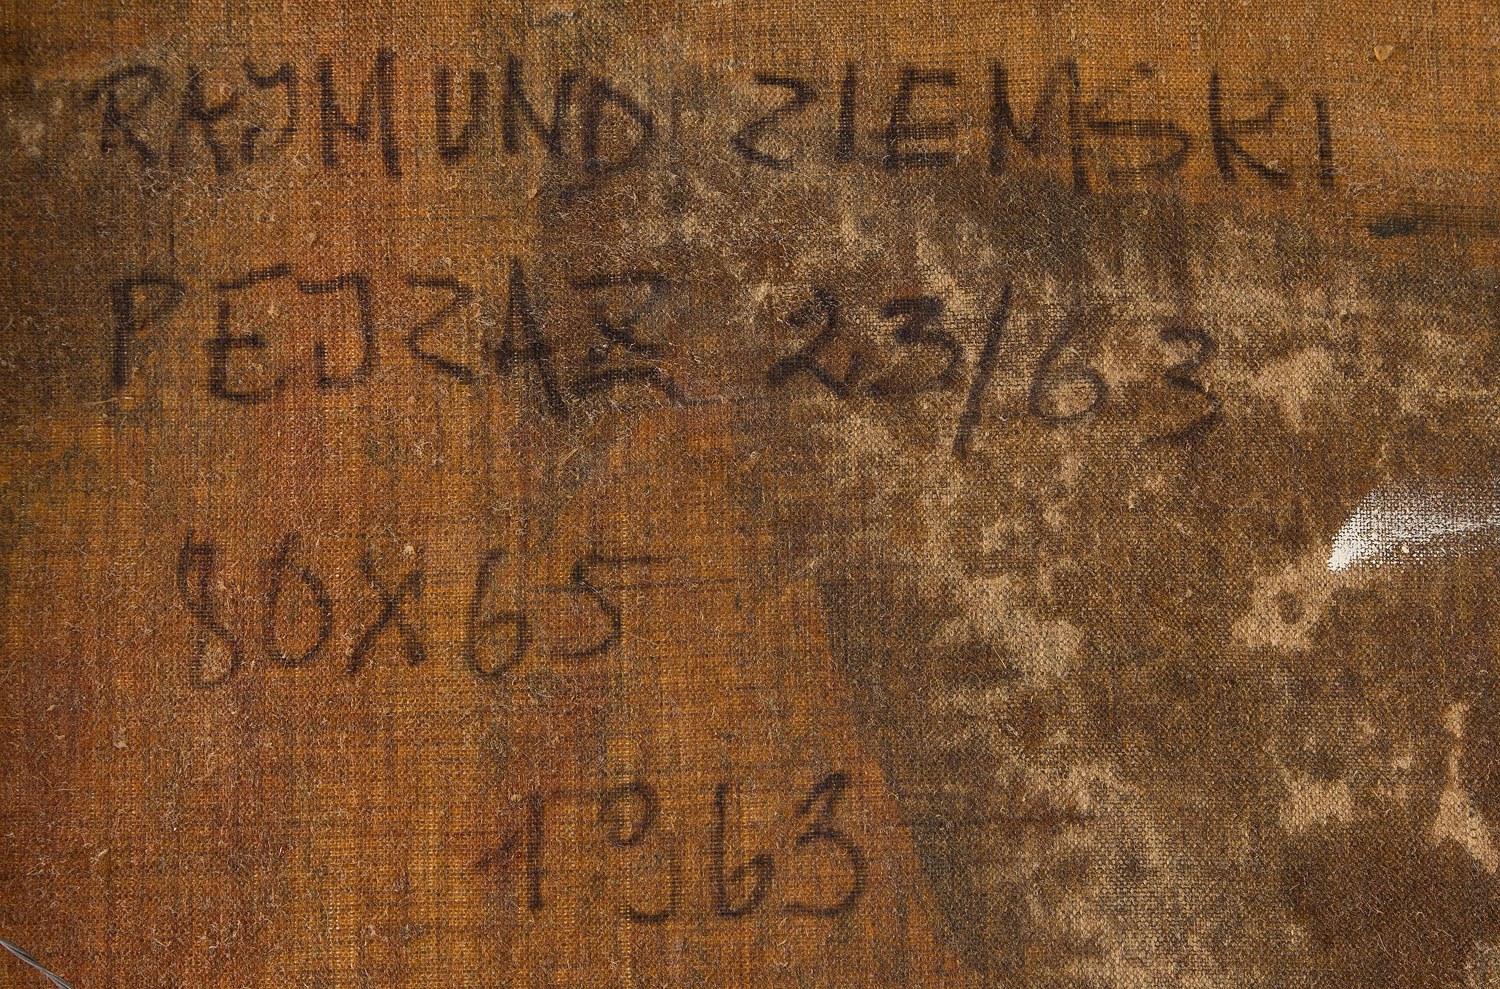 RAJMUND ZIEMSKI
PEJZAŻ 23/63
80X65
1963